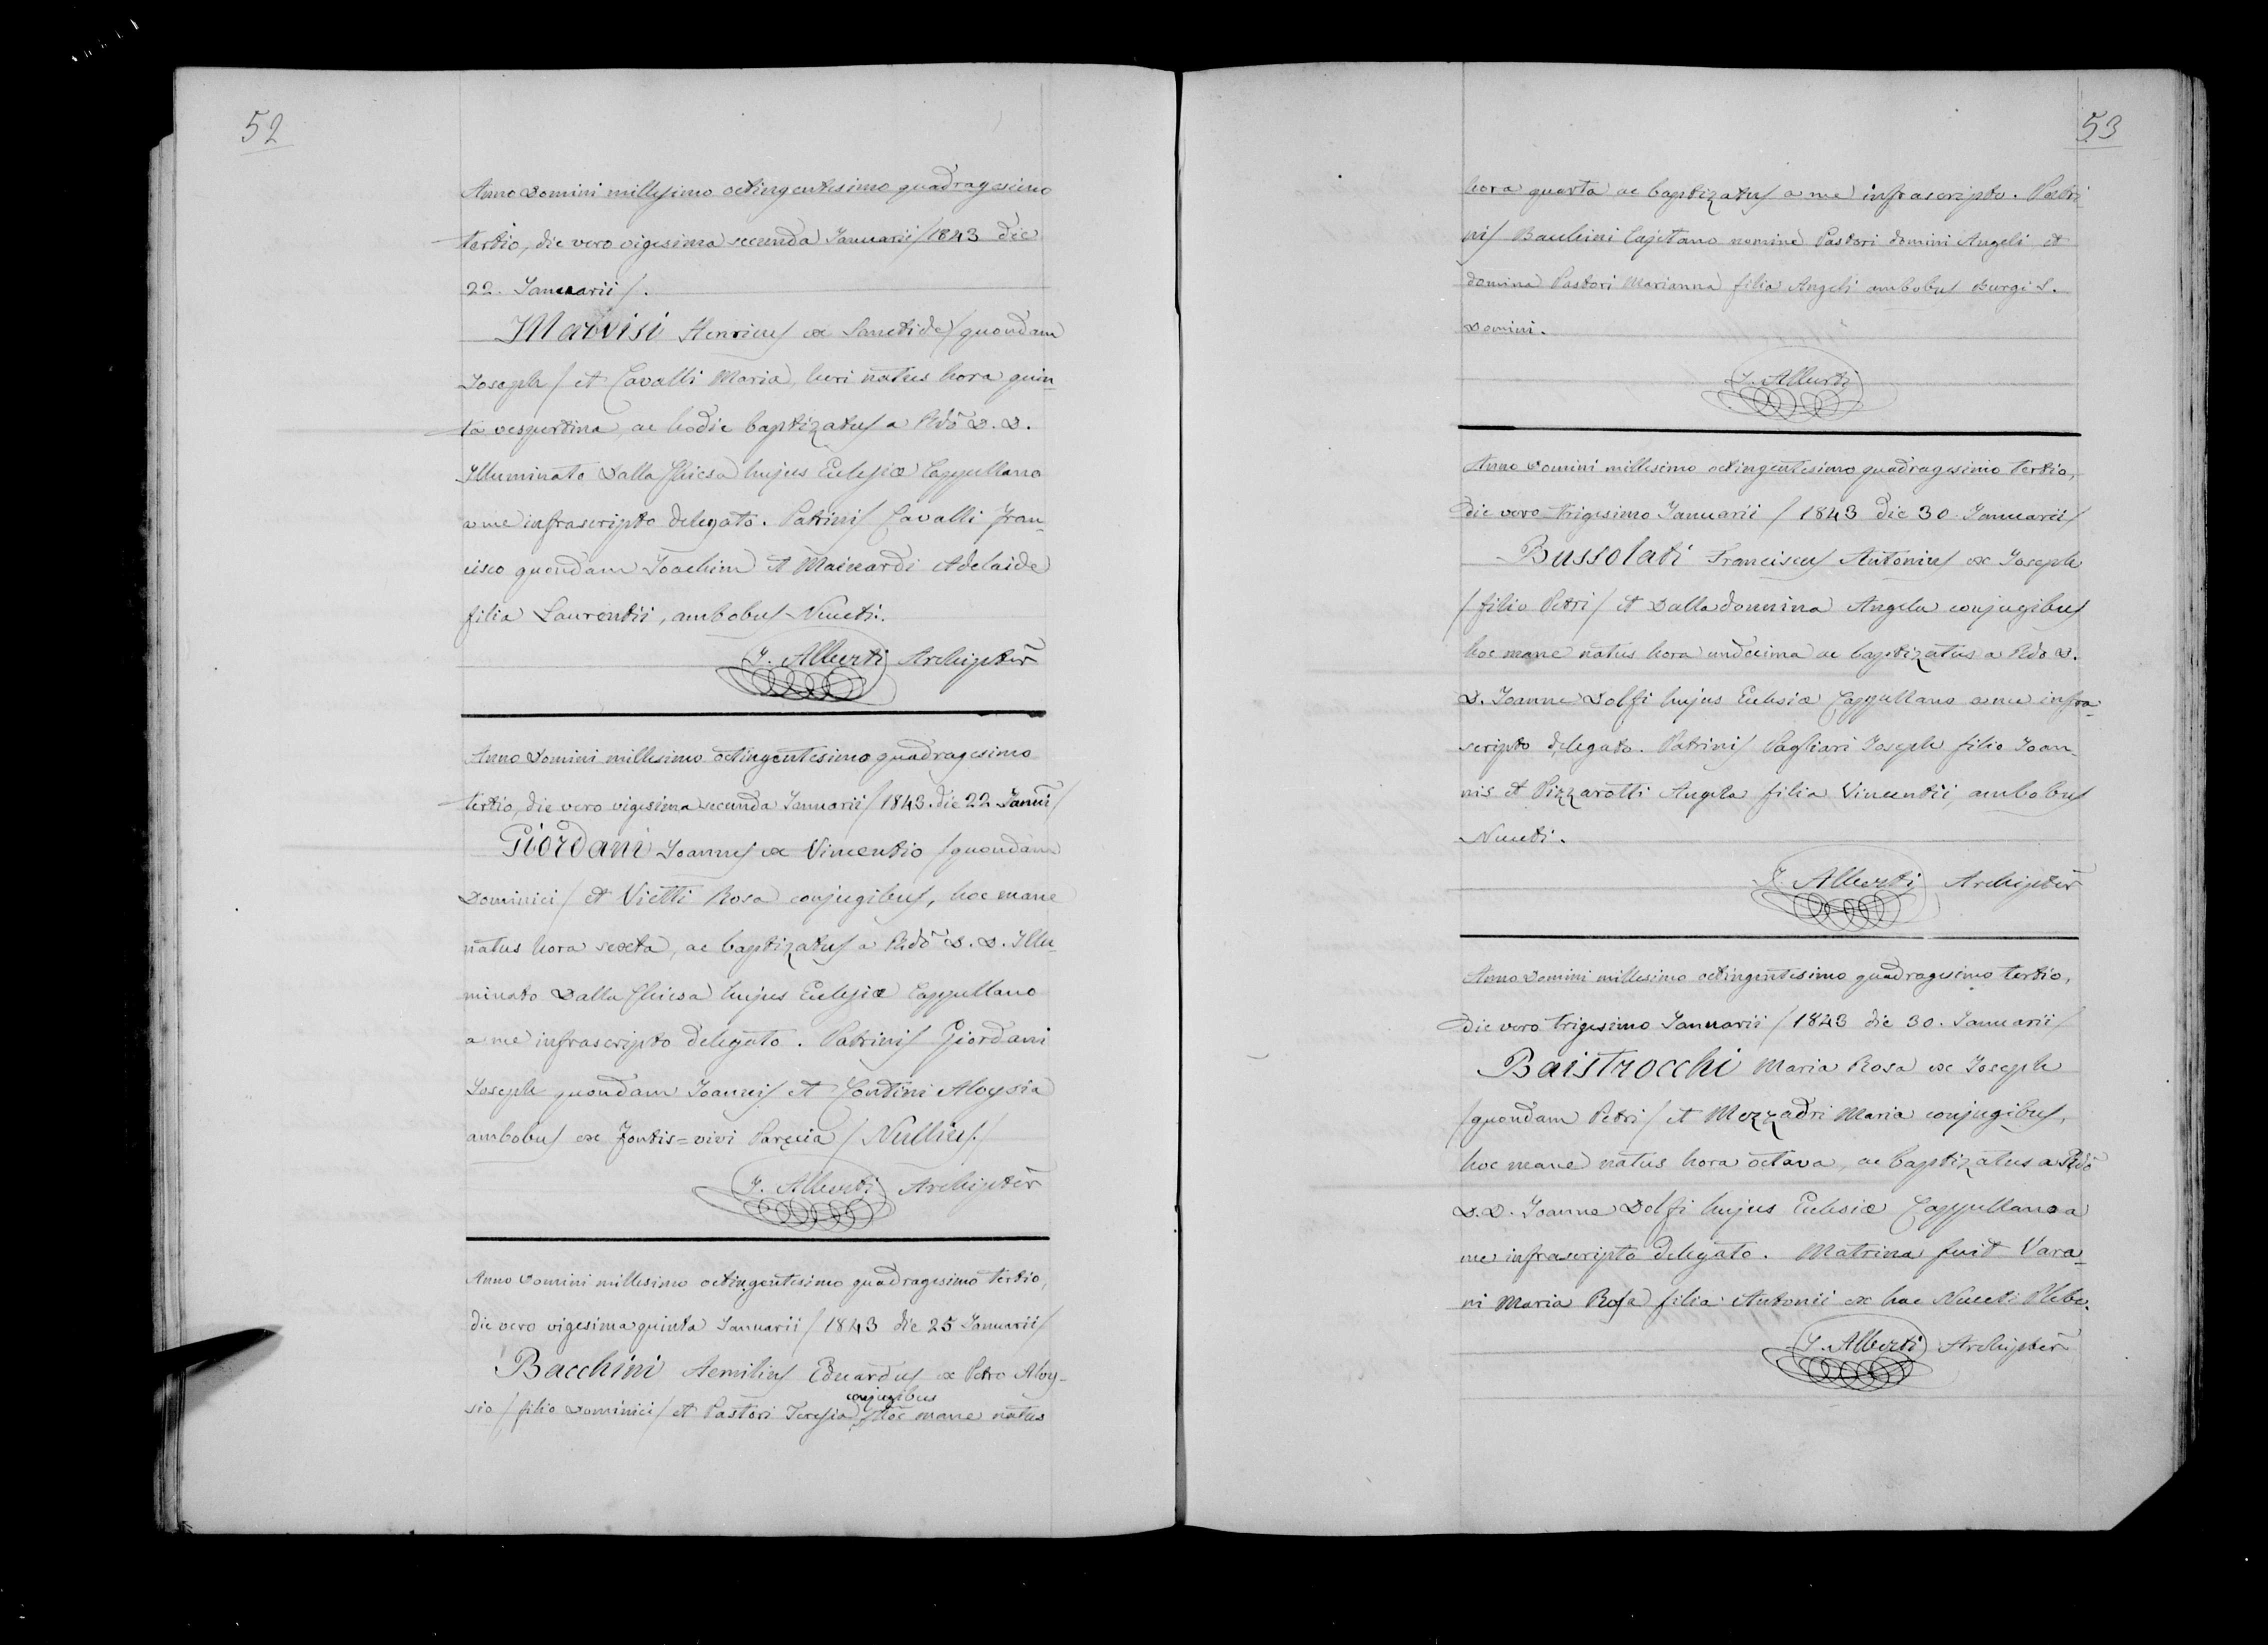 52
Anno Domini millesimo octingentesimo quadragesimo
tertio, die vero vigesima secunda Januarii / 1843 die
22. Januarii /.
Marvisi Henricus ex Sanctide / quondam
Joseph / et Cavalli Maria, heri natus hora quin_
ta vespertina, ac hodie baptizatus a Rdo D. D.
Illuminato Dalla Chiesa hujus Eclesiæ Cappellano
a me infrascripto delegato. Patrinis Cavalli Fran_
cisco quondam Joachim et Mainardi Adelaide
filia Laurentii, ambobus Nuceti.
J. Alberti Archipter
Anno Domini millesimo octingentesimo quadragesimo
tertio, die vero vigesima secunda Januarii / 1843. die 22 Janui /
Giordani Joannes ex Vincentio / quondam
Dominici / et Vietti Rosa conjugibus, hoc mane
natus hora sexta, ac baptizatus a Rdo D. D. Illu_
minato Dalla Chiesa hujus Eclesiæ Cappellano
a me infrascripto delegato. Patrinis Giordani
Joseph quondam Joannis et Contini Aloysia
ambobus ex Fontis=vivi Parecia / Nullius. /
J. Alberti Archipter
Anno Domini millesimo octingentesimo quadragesimo tertio,
die vero vigesima quinta Januarii / 1843 die 25 Januarii /
Bacchini Aemilius Eduardus ex Petro Aloy_
sio / filio Dominici / et Pastori Teresia conjugibus hoc mane natus
53
hora quarta ac baptizatus a me infrascripto. Patri
nis Bachini Cajetano nomine Pastori domini Angeli et
domina Pastori Marianna filia Angeli ambobus Burgi S.
Domini.
J. Alberti
Anno Domini millesimo octingentesimo quadragesimo tertio,
die vero trigesimo Januarii / 1843 die 30. Januarii /
Bussolati Franciscus Antonius ex Joseph
/ filio Petri / et Dalladonnina Angela conjugibus
hoc mane natus hora undecima ac baptizatus a Rdo D.
D. Joanne Dolfi hujus Eclesiæ Cappellano a me infra_
scripto delegato. Patrinis Pagliari Joseph filio Joan_
nis et Pizzarotti Angela filia Vincentii, ambobus
Nuceti.
J. Alberti Archipter
Anno Domini millesimo octingentesimo quadragesimo tertio,
die vero trigesimo Januarii / 1843 die 30. Januarii /
Baistrocchi Maria Rosa ex Joseph
/ quondam Petri / et Mezzadri Maria conjugibus,
hoc mane natus hora octava, ac baptizatus a Rdo
D. D. Joanne Dolfi hujus Eclesiæ Cappellano a
me infrascripto delegato. Matrina fuit Vara_
ni Maria Rosa filia Antonii ex hac Nuceti Plebe.
J. Alberti Archipter